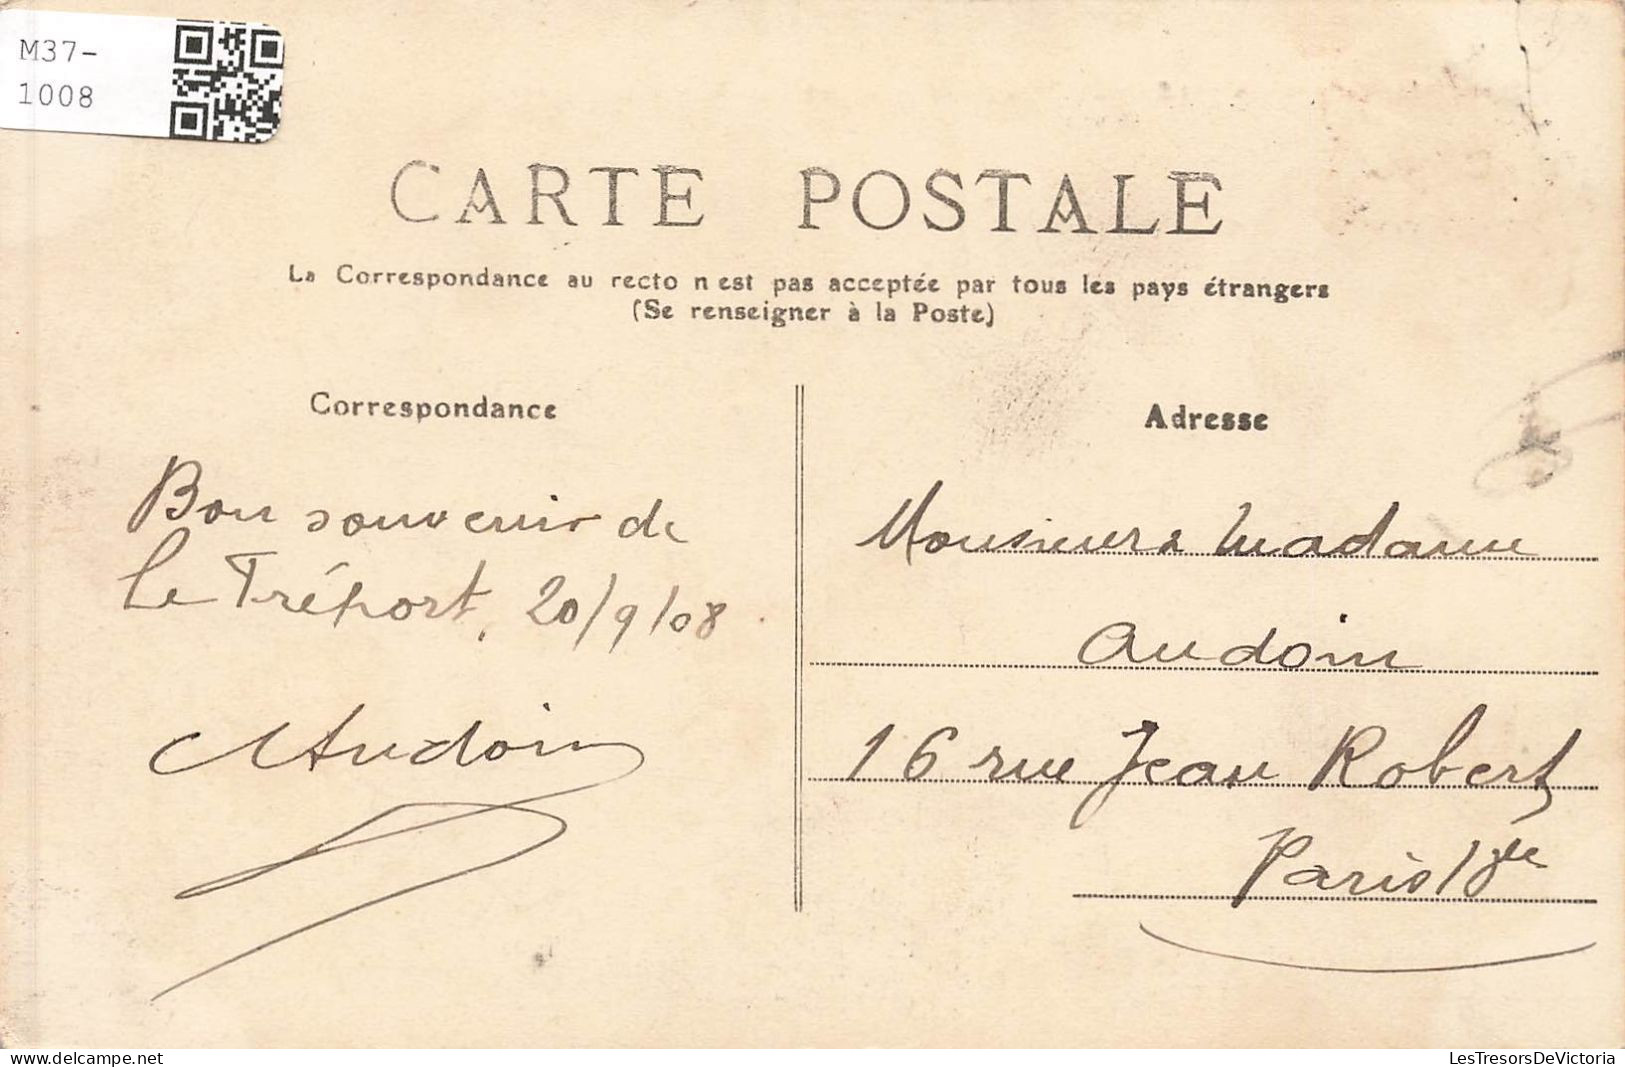 M37-
1008
CARTE POSTALE
La Correspondance au recto n est pas acceptée par tous les pays étrangers
(Se renseigner à la Poste)
Correspondance
Bon souvenir de
Le Tréport, 20/9/08
Audoin
Adresse
Monsieur & Madame
Audoin
16 rue Jean Robert
Paris 18e
LesTresorsDeVictoria